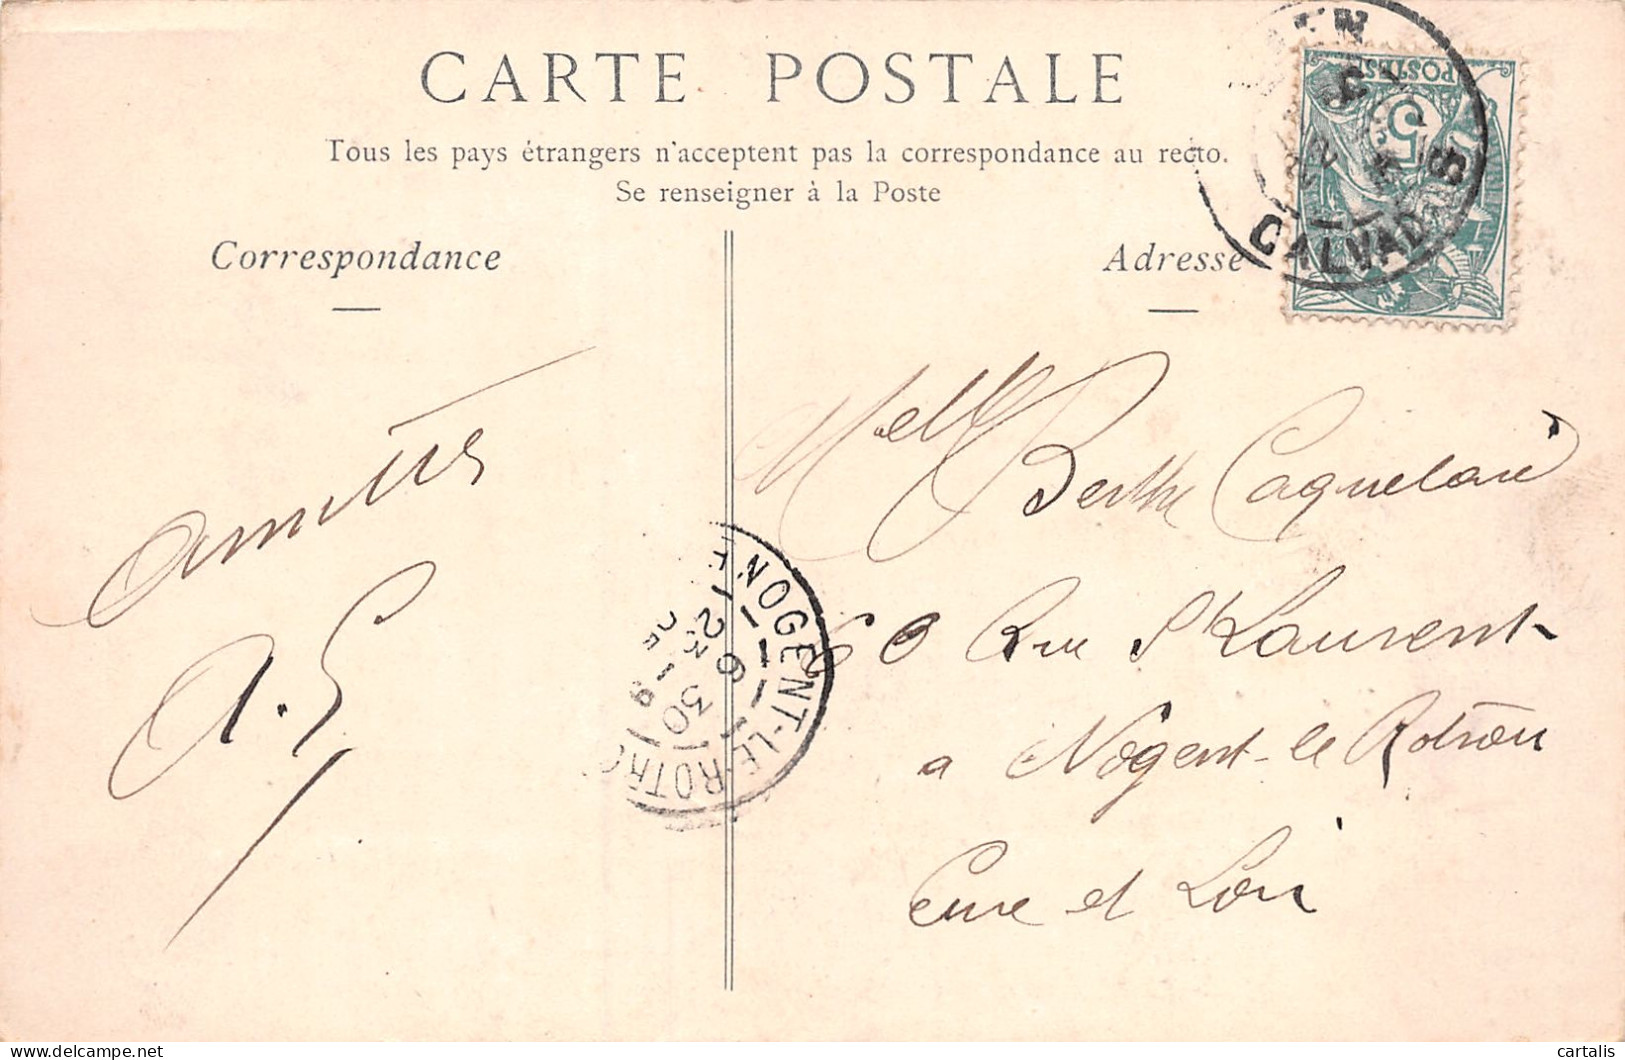 CARTE POSTALE
Tous les pays étrangers n'acceptent pas la correspondance au recto.
Se renseigner à la Poste
Correspondance
Adresse
POSTES
5
CALVADOS
amitiés
A. G
Melle Berthe Caquelard
60 Rue St Laurent
a Nogent-le Rotrou
Eure et Loir
NOGENT-LE-ROTRO
6 30
23 - 9
delcampe.net
cartalis